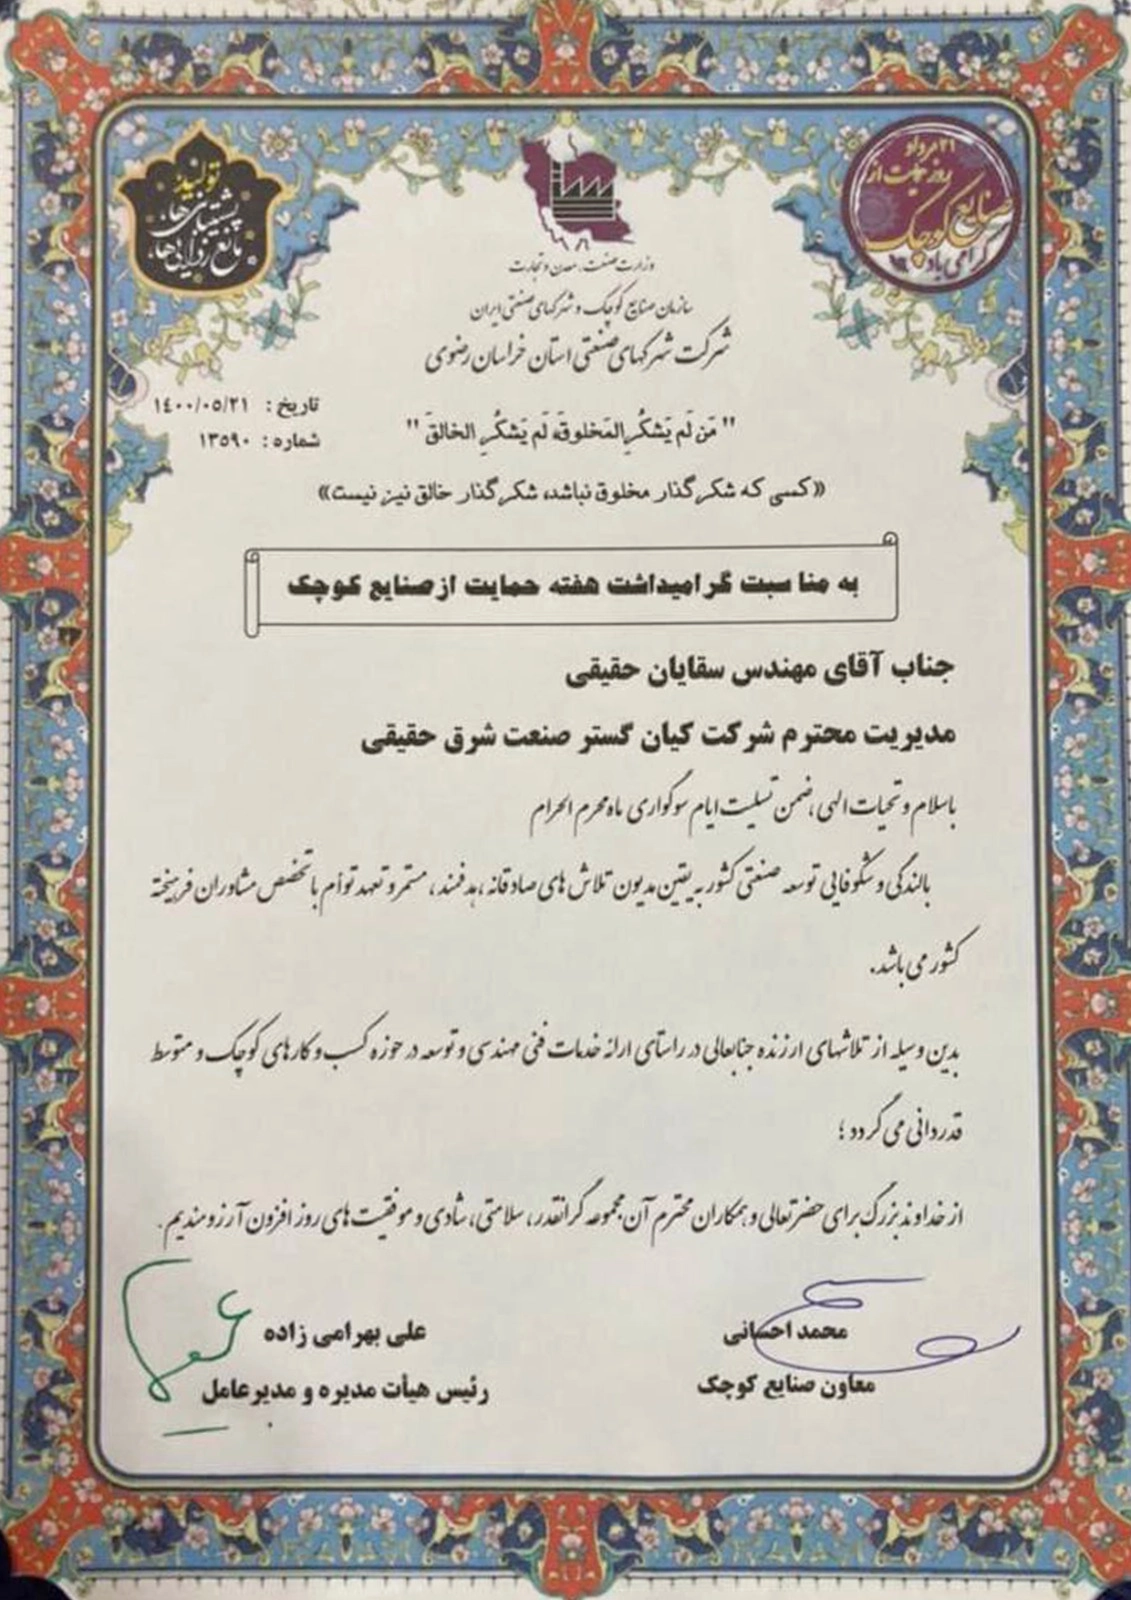 تولید؛
پشتیبانی‌ها،
مانع زدایی‌ها،
۲۱ مرداد
روز حمایت از
صنایع کوچک
گرامی باد
وزارت صنعت، معدن و تجارت
سازمان صنایع کوچک و شهرکهای صنعتی ایران
شرکت شهرکهای صنعتی استان خراسان رضوی
تاریخ : ۱۴۰۰/۰۵/۲۱
شماره : ۱۳۵۹۰
" مَن لَم یَشکُرِ المَخلوقَ لَم یَشکُرِ الخالقَ "
«کسی که شکر گذار مخلوق نباشد، شکر گذار خالق نیز نیست»
به مناسبت گرامیداشت هفته حمایت از صنایع کوچک
جناب آقای مهندس سقایان حقیقی
مدیریت محترم شرکت کیان گستر صنعت شرق حقیقی
باسلام و تحیات الهی، ضمن تسلیت ایام سوگواری ماه محرم الحرام
بالندگی و شکوفایی توسعه صنعتی کشور به یقین مدیون تلاش های صادقانه، هدفمند، مستمر و تعهد توأم با تخصص مشاوران فرهیخته
کشور می باشد.
بدین وسیله از تلاشهای ارزنده جنابعالی در راستای ارائه خدمات فنی مهندسی و توسعه در حوزه کسب و کارهای کوچک و متوسط
قدردانی می گردد ؛
از خداوند بزرگ برای حضرتعالی و همکاران محترم آن مجموعه گرانقدر، سلامتی، شادی و موفقیت های روز افزون آرزومندیم.
محمد احسانی
معاون صنایع کوچک
علی بهرامی زاده
رئیس هیأت مدیره و مدیرعامل